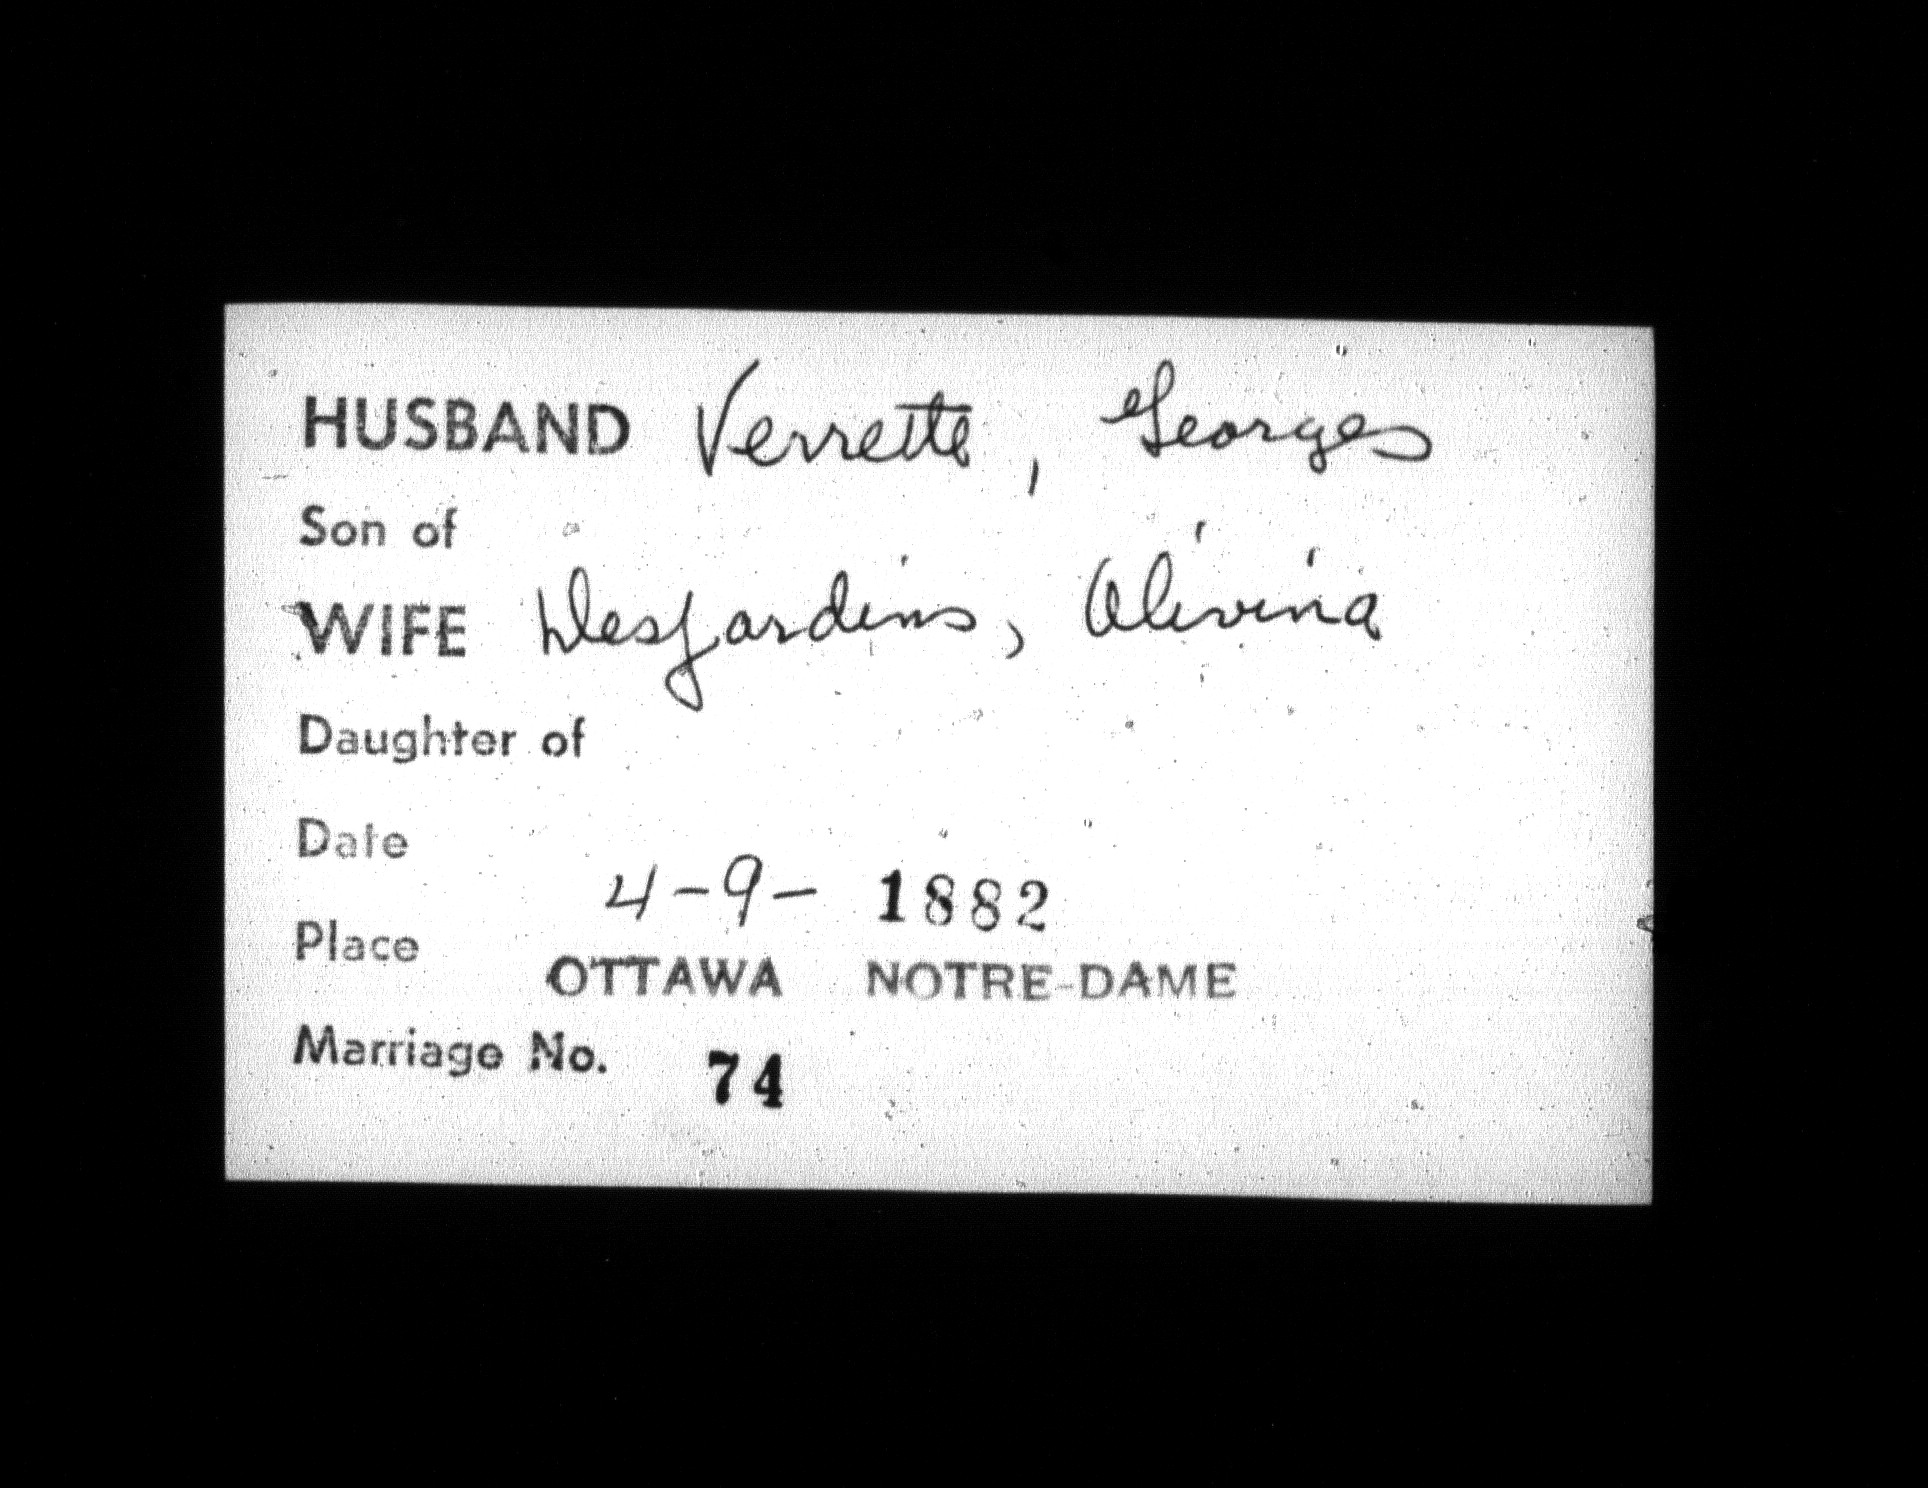 HUSBAND Verrette, Georges
Son of
WIFE Desjardins, Olivina
Daughter of
Date
4-9- 1882
Place
OTTAWA NOTRE-DAME
Marriage No. 74